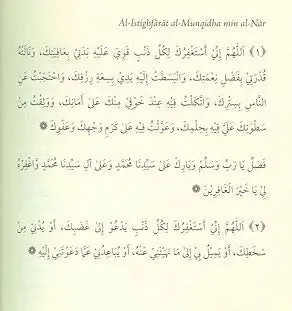 Al-Istighfārāt al-Munqidha min al-Nār
﴿١﴾ اَللّٰهُمَّ إِنِّيْ أَسْتَغْفِرُكَ لِكُلِّ ذَنْبٍ قَوِيَ عَلَيْهِ بَدَنِيْ بِعَافِيَتِكَ، وَنَالَتْهُ
قُدْرَتِيْ بِفَضْلِ نِعْمَتِكَ، وَانْبَسَطَتْ إِلَيْهِ يَدِيْ بِسَعَةِ رِزْقِكَ، وَاحْتَجَبْتُ عَنِ
النَّاسِ بِسِتْرِكَ، وَاتَّكَلْتُ فِيْهِ عِنْدَ خَوْفِيْ مِنْكَ عَلَى أَمَانِكَ، وَوَثِقْتُ مِنْ
سَطْوَتِكَ عَلَيَّ فِيْهِ بِحِلْمِكَ، وَعَوَّلْتُ فِيْهِ عَلَى كَرَمِ وَجْهِكَ وَعَفْوِكَ
فَصَلِّ يَا رَبِّ وَسَلِّمْ وَبَارِكْ عَلَى سَيِّدِنَا مُحَمَّدٍ وَعَلَى آلِ سَيِّدِنَا مُحَمَّدٍ وَاغْفِرْهُ
لِيْ يَا خَيْرَ الْغَافِرِيْنَ
﴿٢﴾ اَللّٰهُمَّ إِنِّيْ أَسْتَغْفِرُكَ لِكُلِّ ذَنْبٍ يَدْعُوْ إِلَى غَضَبِكَ، أَوْ يُدْنِيْ مِنْ
سَخَطِكَ، أَوْ يَمِيْلُ بِيْ إِلَى مَا نَهَيْتَنِيْ عَنْهُ، أَوْ يُبَاعِدُنِيْ عَمَّا دَعَوْتَنِيْ إِلَيْهِ